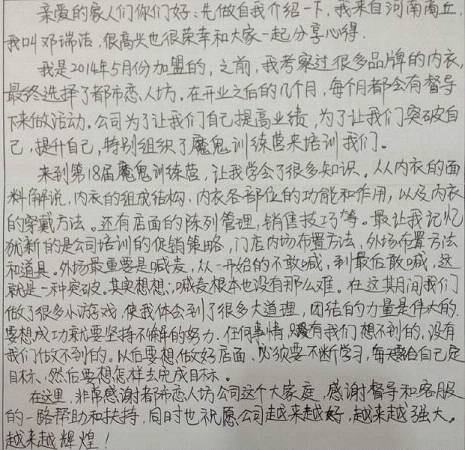 亲爱的家人们你们好:先做自我介绍一下,我来自河南商丘,
我叫邓瑞洁,很高兴也很荣幸和大家一起分享心得.
我是2014年5月份加盟的,之前,我考察过很多品牌的内衣,
最终选择了都市恋人坊.在开业之后的几个月,每个月都会有督导
下来做活动.公司为了让我们自己提高业绩,为了让我们突破自
己,提升自己,特别组织了魔鬼训练营来培训我们.
来到第18届魔鬼训练营,让我学会了很多知识.从内衣的面
料解说,内衣的组成结构,内衣各部位的功能和作用,以及内衣
的穿戴方法.还有店面的陈列管理,销售技巧等.最让我记忆
犹新的是公司培训的促销策略,门店内场布置方法,外场布置方法
和道具.外场最重要是喊麦,从一开始的不敢喊,到最后敢喊,这
就是一种突破.其实想想,喊麦根本也没有那么难.在这其间我们
做了很多小游戏,使我体会到了很多大道理,团结的力量是伟大的.
要想成功就要坚持不懈的努力.任何事情,只有我们想不到的,没有
我们做不到的.以后要想做好店面,必须要不断学习,每天给自己定
目标,然后要想怎样去完成目标.
在这里,非常感谢都市恋人坊公司这个大家庭,感谢督导和客服
的一路帮助和扶持,同时也祝愿公司越来越好,越来越强大,
越来越辉煌!